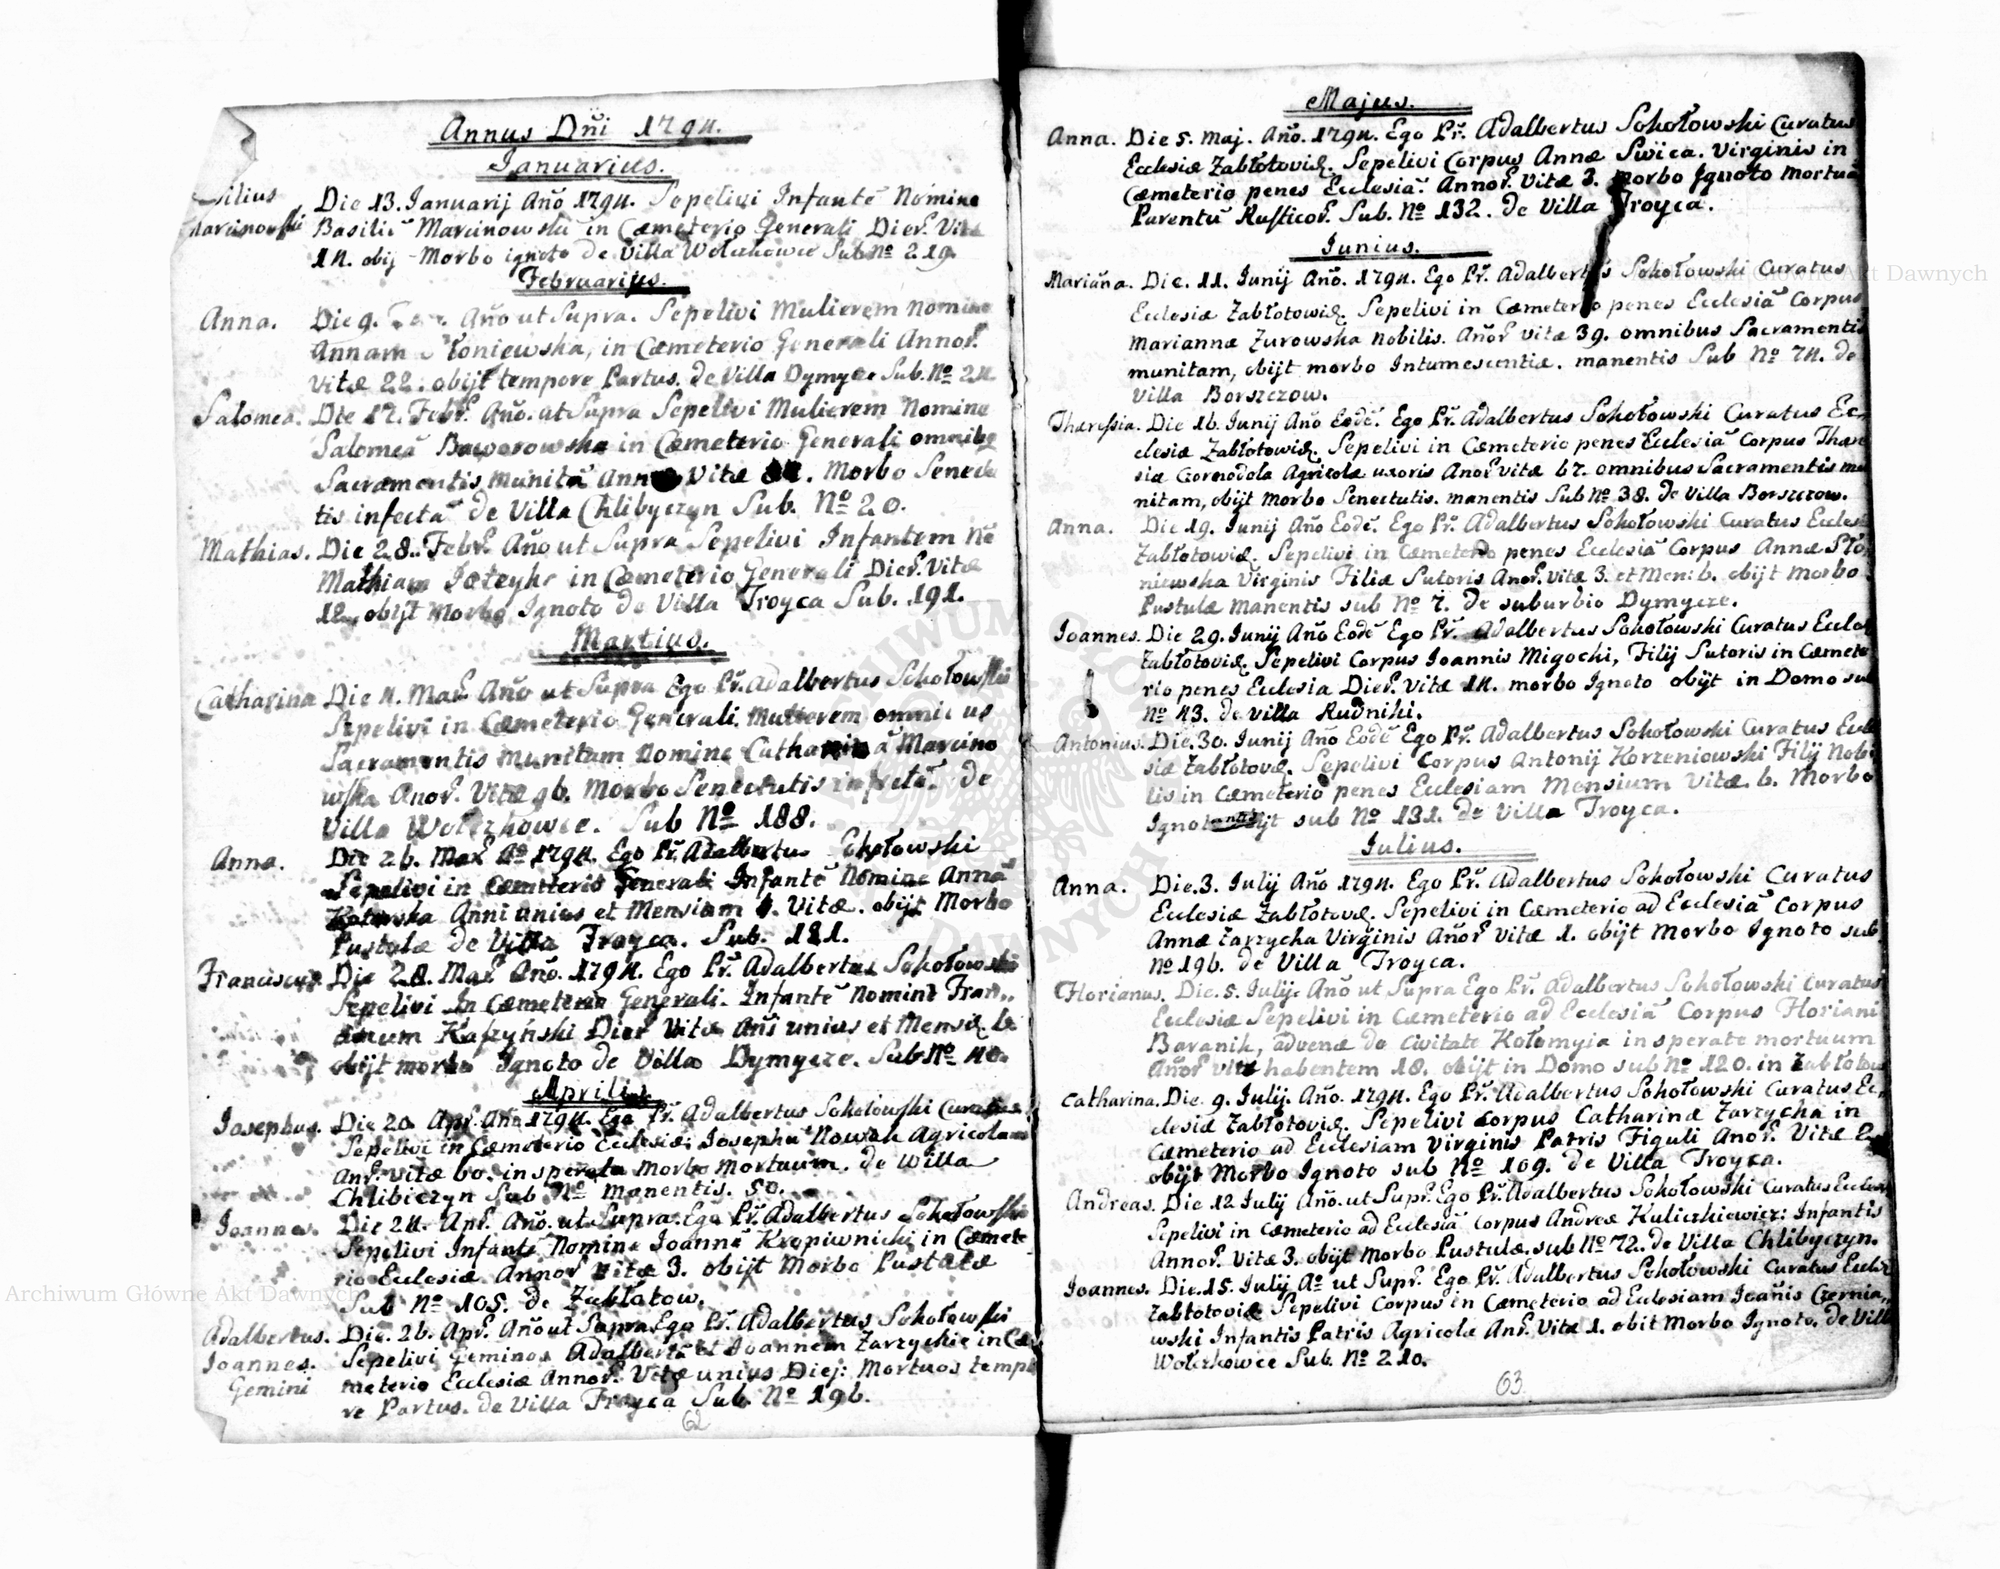 Annus Dñi 1794.
Januarius.
Die 13. Januarij Año 1794. Sepelivi Infantẽ Nomine
Basiliũ Marcinowski in Cæmeterio Generali Dier. Vitæ
14. obij Morbo ignoto de Villa Wołczkowce Sub Nº 219.
Februarius.
Anna. Die 9. Año ut Supra. Sepelivi Mulierem Nomine
Annam Słoniewska, in Cæmeterio Generali Annor.
Vitæ 22. obijt tempore Partus. de Villa Dymycze Sub. Nº 24.
Salomea. Die 17. Febr. Año. ut Supra Sepelivi Mulierem Nomine
Salomeã Baworowska in Cæmeterio Generali omnibg
Sacramentis Munitã Vitæ Morbo Senectu
tis infectã de Villa Chlibyczyn Sub. Nº 20.
Mathias. Die 28. Febr. Año ut Supra Sepelivi Infantem Nõe
Mathiam in Cæmeterio Generali Dier. Vitæ
12. obijt Morbo Ignoto de Villa Troyca Sub. 191.
Martius.
Catharina Die 4. Mar. Año ut Supra Ego Pr. Adalbertus Sokołowski
Sepelivi in Cæmeterio Generali. Mulierem omnibus
Sacramentis munitam Nomine Catharinã Marcino
wska Anor. Vitæ 96. Morbo Senectutis infectã. de
Villa Wołczkowce. Sub Nº 188.
Anna. Die 26. Mar. Aº 1794. Ego Pr. Adalbertus Sokołowski
Sepelivi in Cæmeterio Generali Infantẽ Nomine Annã
Anni unius et Mensium Vitæ. obijt Morbo
Pustulæ de Villa Troyca. Sub. 121.
Franciscus. Die 28. Mar. Año. 1794. Ego Pr. Adalbertus Sokołowski
Sepelivi In Cæmeterio Generali. Infantẽ Nominẽ Fran„
cum Kaszynski Dier Vitæ Añi unius et Mens. 6
obijt morbo Ignoto de Villa Dymycze. Sub Nº 40.
Aprilis
Josephus. Die 20 Apr. Año 1794. Ego Pr. Adalbertus Sokołowski Curatus
Sepelivi in Cæmeterio Ecclesiæ. Josephũ Nowak Agricolam
Anr. vitæ 60. insperata morbo mortuum. de Willa
Chlibiczyn Sub Nº Manentis. 50.
Joannes. Die 24. Apr. Año. ut Supra. Ego Pr. Adalbertus Sokołowski
Sepelivi Infantẽ Nomine Joannẽ Kropiwnicki in Cæmete
rio Eclesiæ Annor vitæ 3. obijt Morbo Pustulæ
Sub Nº 105. de Zabłotow.
Adalbertus. Die. 26. Apr. Año ut Supra Ego Pr. Adalbertus Sokołowski
Joannes. Sepelivi Geminos Adalbertũ et Joannem Zarzyckie in Cæ
Gemini meterio Ecclesiæ Annor. Vitæ unius Diej: Mortuos tempo
re Partus. de Villa Troyca Sub. Nº 196.
62
Majus.
Anna. Die 5. Maj. Año. 1794. Ego Pr. Adalbertus Sokołowski Curatus
Ecclesiæ Zabłotoviẽ. Sepelivi Corpus Annæ Swica. Virginis in
Cæmeterio penes Ecclesiã. Annor. Vitæ 3. Morbo Ignoto Mortuã
Parentũ Rusticor. Sub. Nº 132. de Villa Troyca.
Junius.
Mariãna. Die. 11. Junij Año. 1794. Ego Pr. Adalbertus Sokołowski Curatus
Ecclesiæ Zabłotowiẽ. Sepelivi in Cæmeterio penes Ecclesiã Corpus
Mariannæ Zurowska Nobilis. Añor vitæ 39. omnibus Sacramentis
munitam, obijt morbo Intumescentiæ. manentis Sub Nº 74. de
Villa Borszczow.
Theressia. Die 16. Junij Año Eodẽ. Ego Pr. Adalbertus Sokołowski Curatus Ec„
clesiæ Zabłotowiẽ. Sepelivi in Cæmeterio penes Ecclesiã Corpus There
siæ Gornodola Agricolæ uxoris Anor vitæ 67. omnibus Sacramentis mu
nitam, obijt Morbo Senectutis. manentis Sub Nº 38. de Villa Borszczow.
Anna. Die 19. Junij Año Eodẽ. Ego Pr. Adalbertus Sokołowski Curatus Eccles
Zabłotowiẽ. Sepelivi in Cæmeterio penes Ecclesiã Corpus Annæ Sło
niewska Virginis Filiæ Sutoris Anor. vitæ 3. et Men: 6. obijt Morbo
Pustulæ Manentis sub Nº 7. de suburbio Dymycze.
Joannes. Die 29. Junij Año Eodẽ Ego Pr. Adalbertus Sokołowski Curatus Eccle
Zabłotoviẽ. Sepelivi Corpus Joannis Migocki, Filij Sutoris in Cæmete
rio penes Eclesia Dier. Vitæ 14. morbo Ignoto obijt in Domo sub
Nº 43. de Villa Rudniki.
Antonius. Die. 30. Junij Año Eodẽ Ego Pr. Adalbertus Sokołowski Curatus Eccle
siæ Zabłotovẽ. Sepelivi Corpus Antonij Korzeniowski Filij Nobi
lis in Cæmeterio penes Eclesiam Mensium Vitæ. 6. Morbo
Ignoto obijt sub Nº 131. de Villa Troyca.
Julius.
Anna. Die. 3. Julij Año 1794. Ego Pr. Adalbertus Sokołowski Curatus
Ecclesiæ Zabłotovẽ. Sepelivi in Cæmeterio ad Ecclesiã Corpus
Annæ Zarzycka Virginis Añor vitæ 1. obijt Morbo Ignoto sub
Nº 196. de Villa Troyca.
Florianus. Die. 5. Julij. Año ut Supra Ego Pr. Adalbertus Sokołowski Curatus
Ecclesiæ Sepelivi in Cæmeterio ad Ecclesiã Corpus Floriani
Baranik, advenæ de Civitate Kołomyia insperate mortuum
Añor vitæ habentem 18. obijt in Domo sub Nº 120. in Zabłotow
Catharina. Die. 9. Julij. Año. 1794. Ego Pr. Adalbertus Sokołowski Curatus Ec„
clesiæ Zabłotoviẽ. Sepelivi Corpus Catharinæ Zarzycka in
Cæmeterio ad Ecclesiam Virginis Patris Figuli Anor. Vitæ 2.
obijt Morbo Ignoto sub Nº 109. de Villa Troyca.
Andreas. Die. 12 Julij Año. ut Supr. Ego Pr. Adalbertus Sokołowski Curatus Eccles
Sepelivi in Cæmeterio ad Ecclesiã Corpus Andreæ Kuliczkiewicz: Infantis
Annor. Vitæ 3. obijt Morbo Pustulæ. sub Nº 72. de Villa Chlibyczyn.
Joannes. Die. 15. Julij Aº ut Supr. Ego Pr. Adalbertus Sokołowski Curatus Eccle
Zabłotoviẽ Sepelivi Corpus in Cæmeterio ad Eclesiam Joañis Czernia„
wski Infantis Patris Agricolæ Anr. Vitæ 1. obit Morbo Ignoto. de Villa
Wołczkowce Sub. Nº 210.
63
Archiwum Główne Akt Dawnych
Archiwum Główne Akt Dawnych